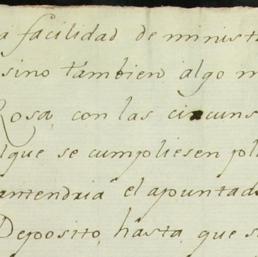 a facilidad de minist
sino tambien algo m
Rosa, con las circuns
que se cumpliesen pl
antendria el apuntad
Deposito, hasta, que s